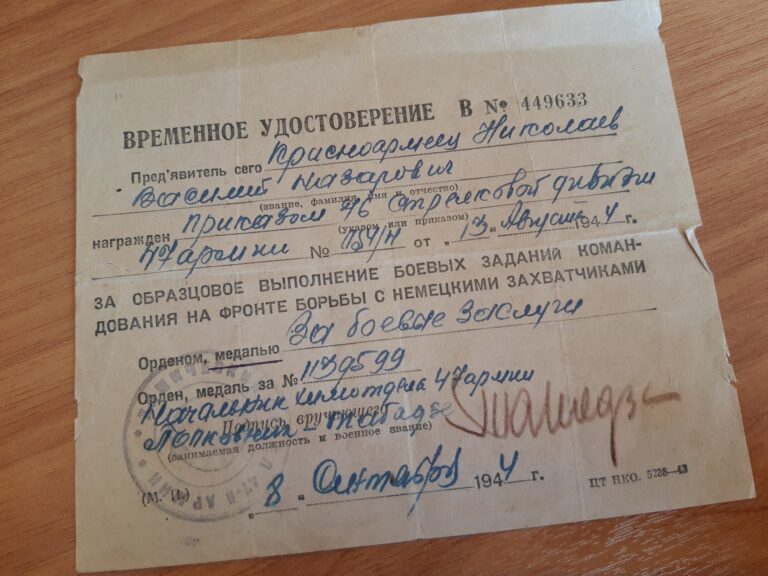 ВРЕМЕННОЕ УДОСТОВЕРЕНИЕ В № 449633
Пред'явитель сего Красноармеец Николаев
Василий Назарович
(звание, фамилия, имя и отчество)
награжден приказом 76 стрелковой дивизи
(указом или приказом)
47 армии № 154/н от „13„ Августа 1944 г.
ЗА ОБРАЗЦОВОЕ ВЫПОЛНЕНИЕ БОЕВЫХ ЗАДАНИЙ КОМАН-
ДОВАНИЯ НА ФРОНТЕ БОРЬБЫ С НЕМЕЦКИМИ ЗАХВАТЧИКАМИ
Орденом, медалью За боевые заслуги
Орден, медаль за № 1139599
Начальник химотдела 47 армии
Подпись вручающего
Полковник
(занимаемая должность и военное звание)
(М. П.) „8„ Октября 1944 г.
ЦТ НКО. 5238—43